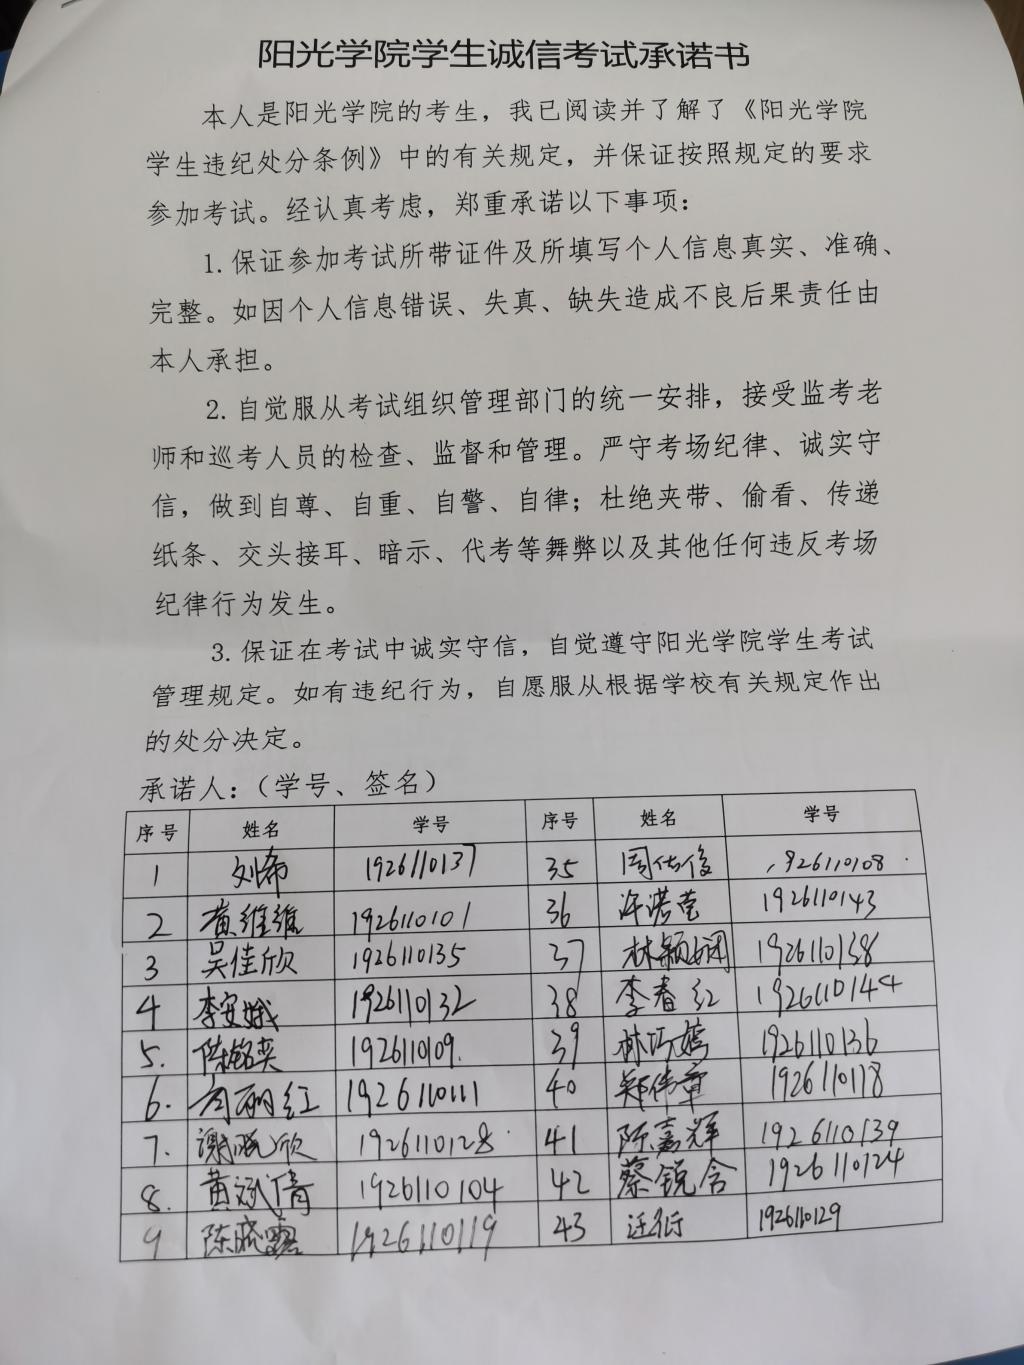 阳光学院学生诚信考试承诺书
本人是阳光学院的考生，我已阅读并了解了《阳光学院
学生违纪处分条例》中的有关规定，并保证按照规定的要求
参加考试。经认真考虑，郑重承诺以下事项：
1.保证参加考试所带证件及所填写个人信息真实、准确、
完整。如因个人信息错误、失真、缺失造成不良后果责任由
本人承担。
2.自觉服从考试组织管理部门的统一安排，接受监考老
师和巡考人员的检查、监督和管理。严守考场纪律、诚实守
信，做到自尊、自重、自警、自律；杜绝夹带、偷看、传递
纸条、交头接耳、暗示、代考等舞弊以及其他任何违反考场
纪律行为发生。
3.保证在考试中诚实守信，自觉遵守阳光学院学生考试
管理规定。如有违纪行为，自愿服从根据学校有关规定作出
的处分决定。
承诺人：（学号、签名）
序号 姓名 学号 序号 姓名 学号
1 刘希 1926110137 35 926110108
2 黄维维 1926110101 36 许诺莹 1926110143
3 吴佳欣 1926110135 37 林颖娴 1926110138
4 李安娥 1926110132 38 李春红 1926110144
5. 陈铭奕 1926110109. 39 林巧嫣 1926110136
6. 丽红 1926110111 40 郑伟章 1926110118
7. 谢晓欣 1926110128 41 陈嘉辉 1926110139
8. 黄斌倩 1926110104 42 蔡锐含 1926110124
9 陈晓露 1926110119 43 1926110129